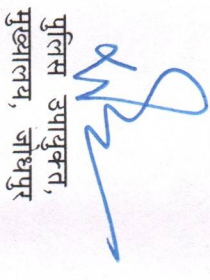 पुलिस उपायुक्त,
मुख्यालय, जोधपुर